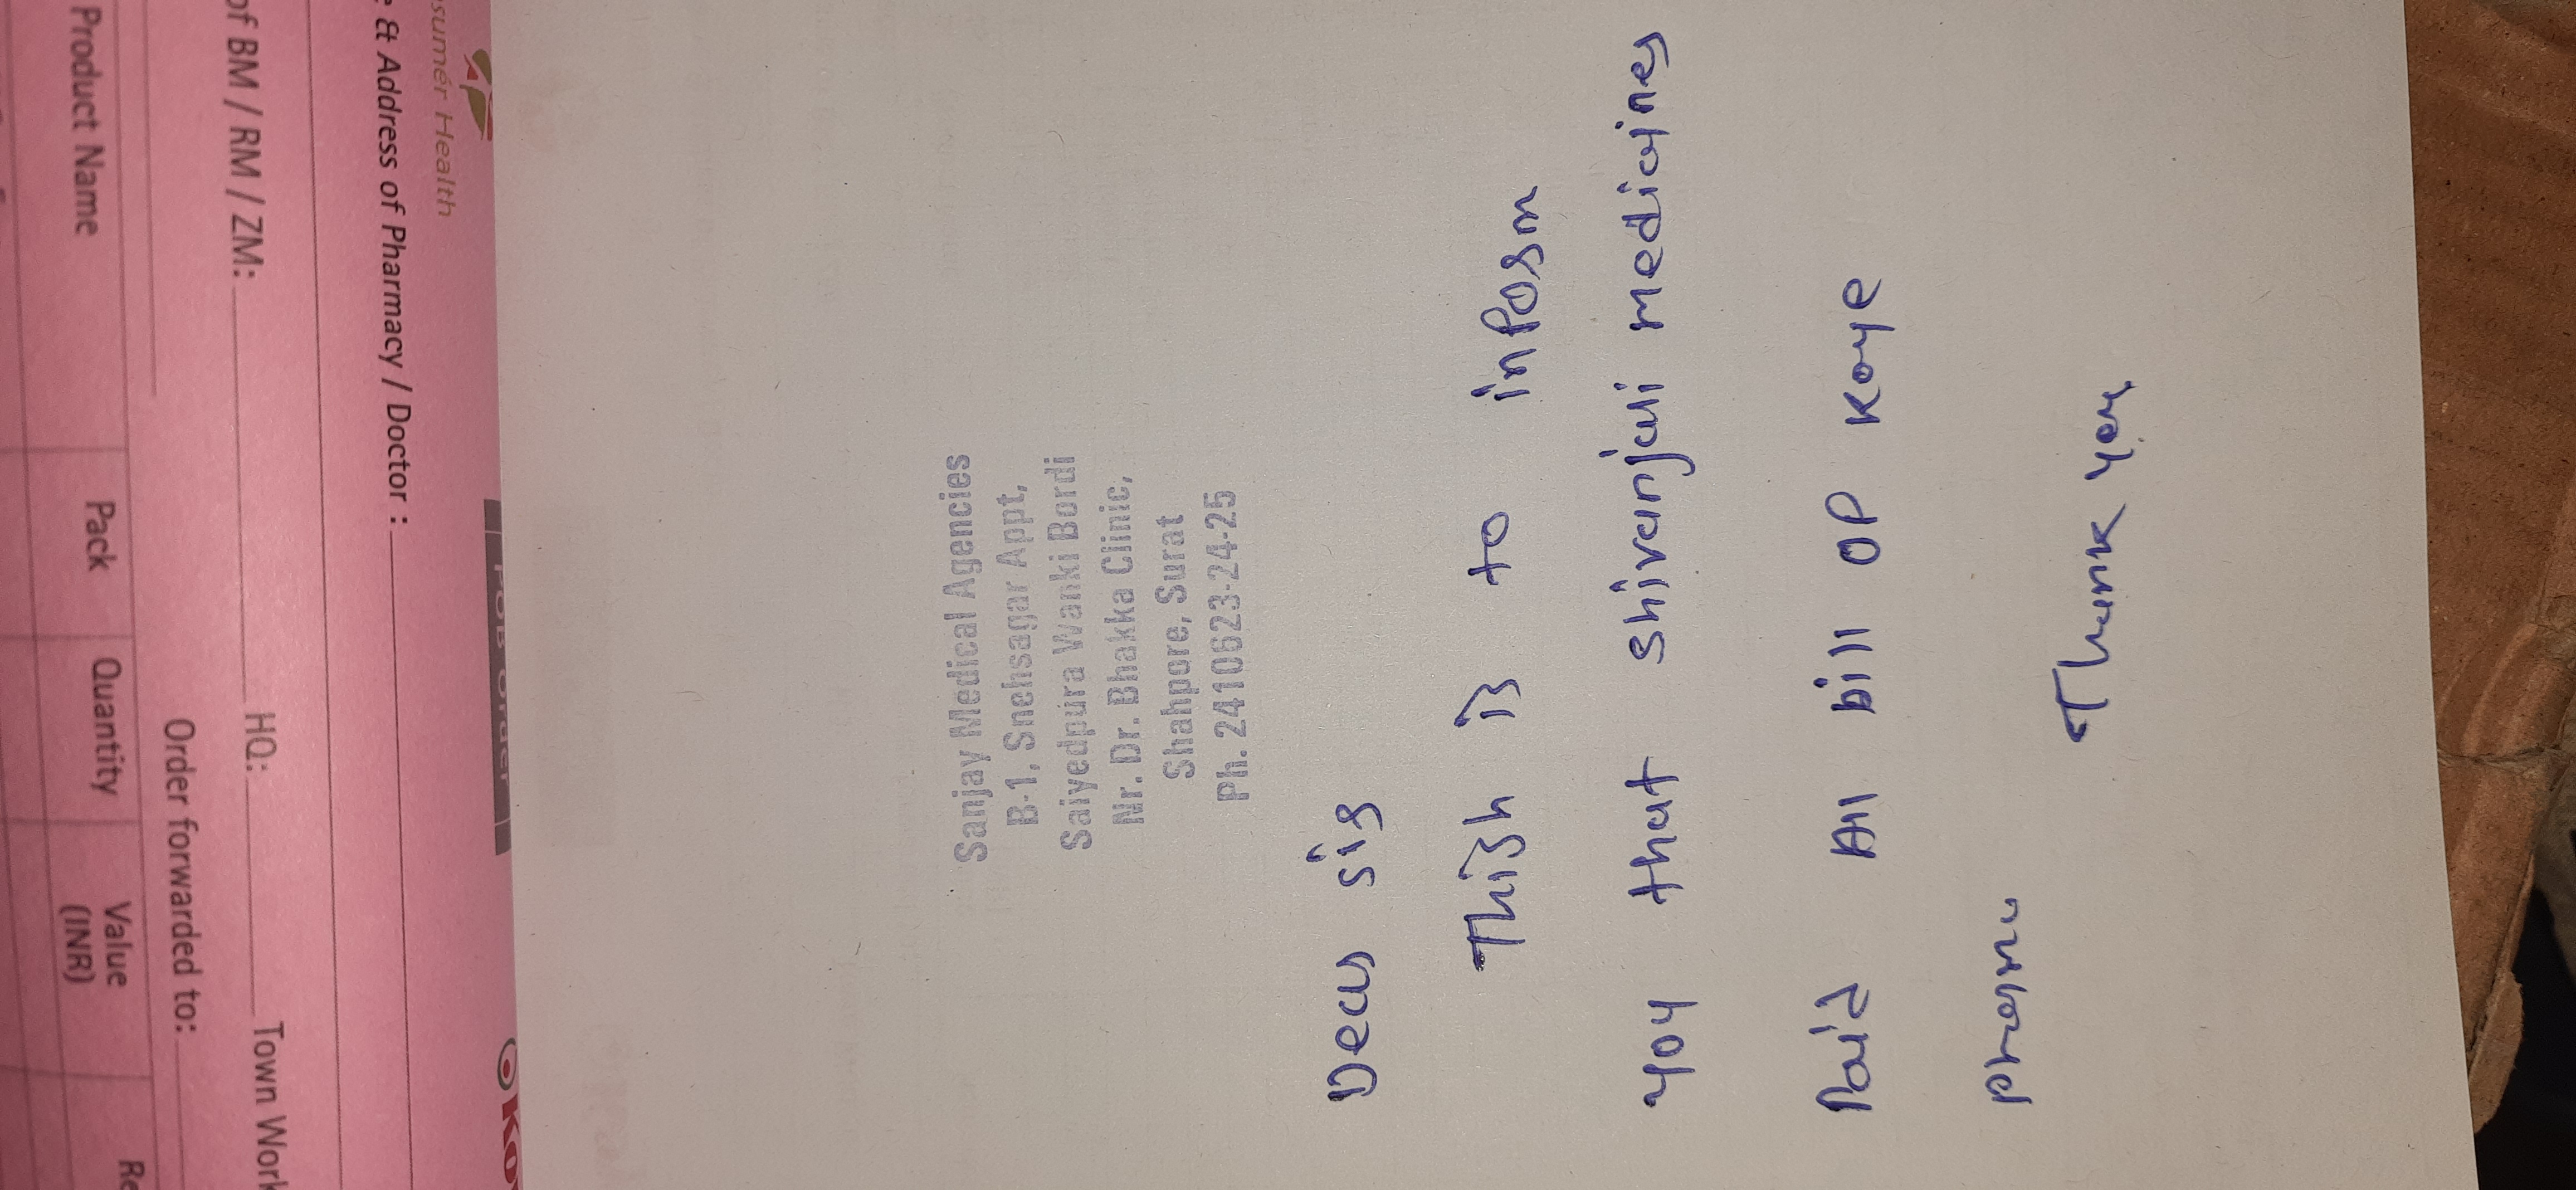 Sanjay Medical Agencies
B-1, Snehsagar Appt,
Saiyedpura Wanki Bordi
Nr. Dr. Bhakka Clinic,
Shahpore, Surat
Ph. 2410623-24-25
Dear sir
This is to inform
you that shivanjali medicines
Paid All bill of Koye
pharma
Thank you
sumér Health
& Address of Pharmacy / Doctor :
of BM / RM / ZM: HQ: Town Work
Order forwarded to:
Product Name Pack Quantity Value
(INR)
POB Order